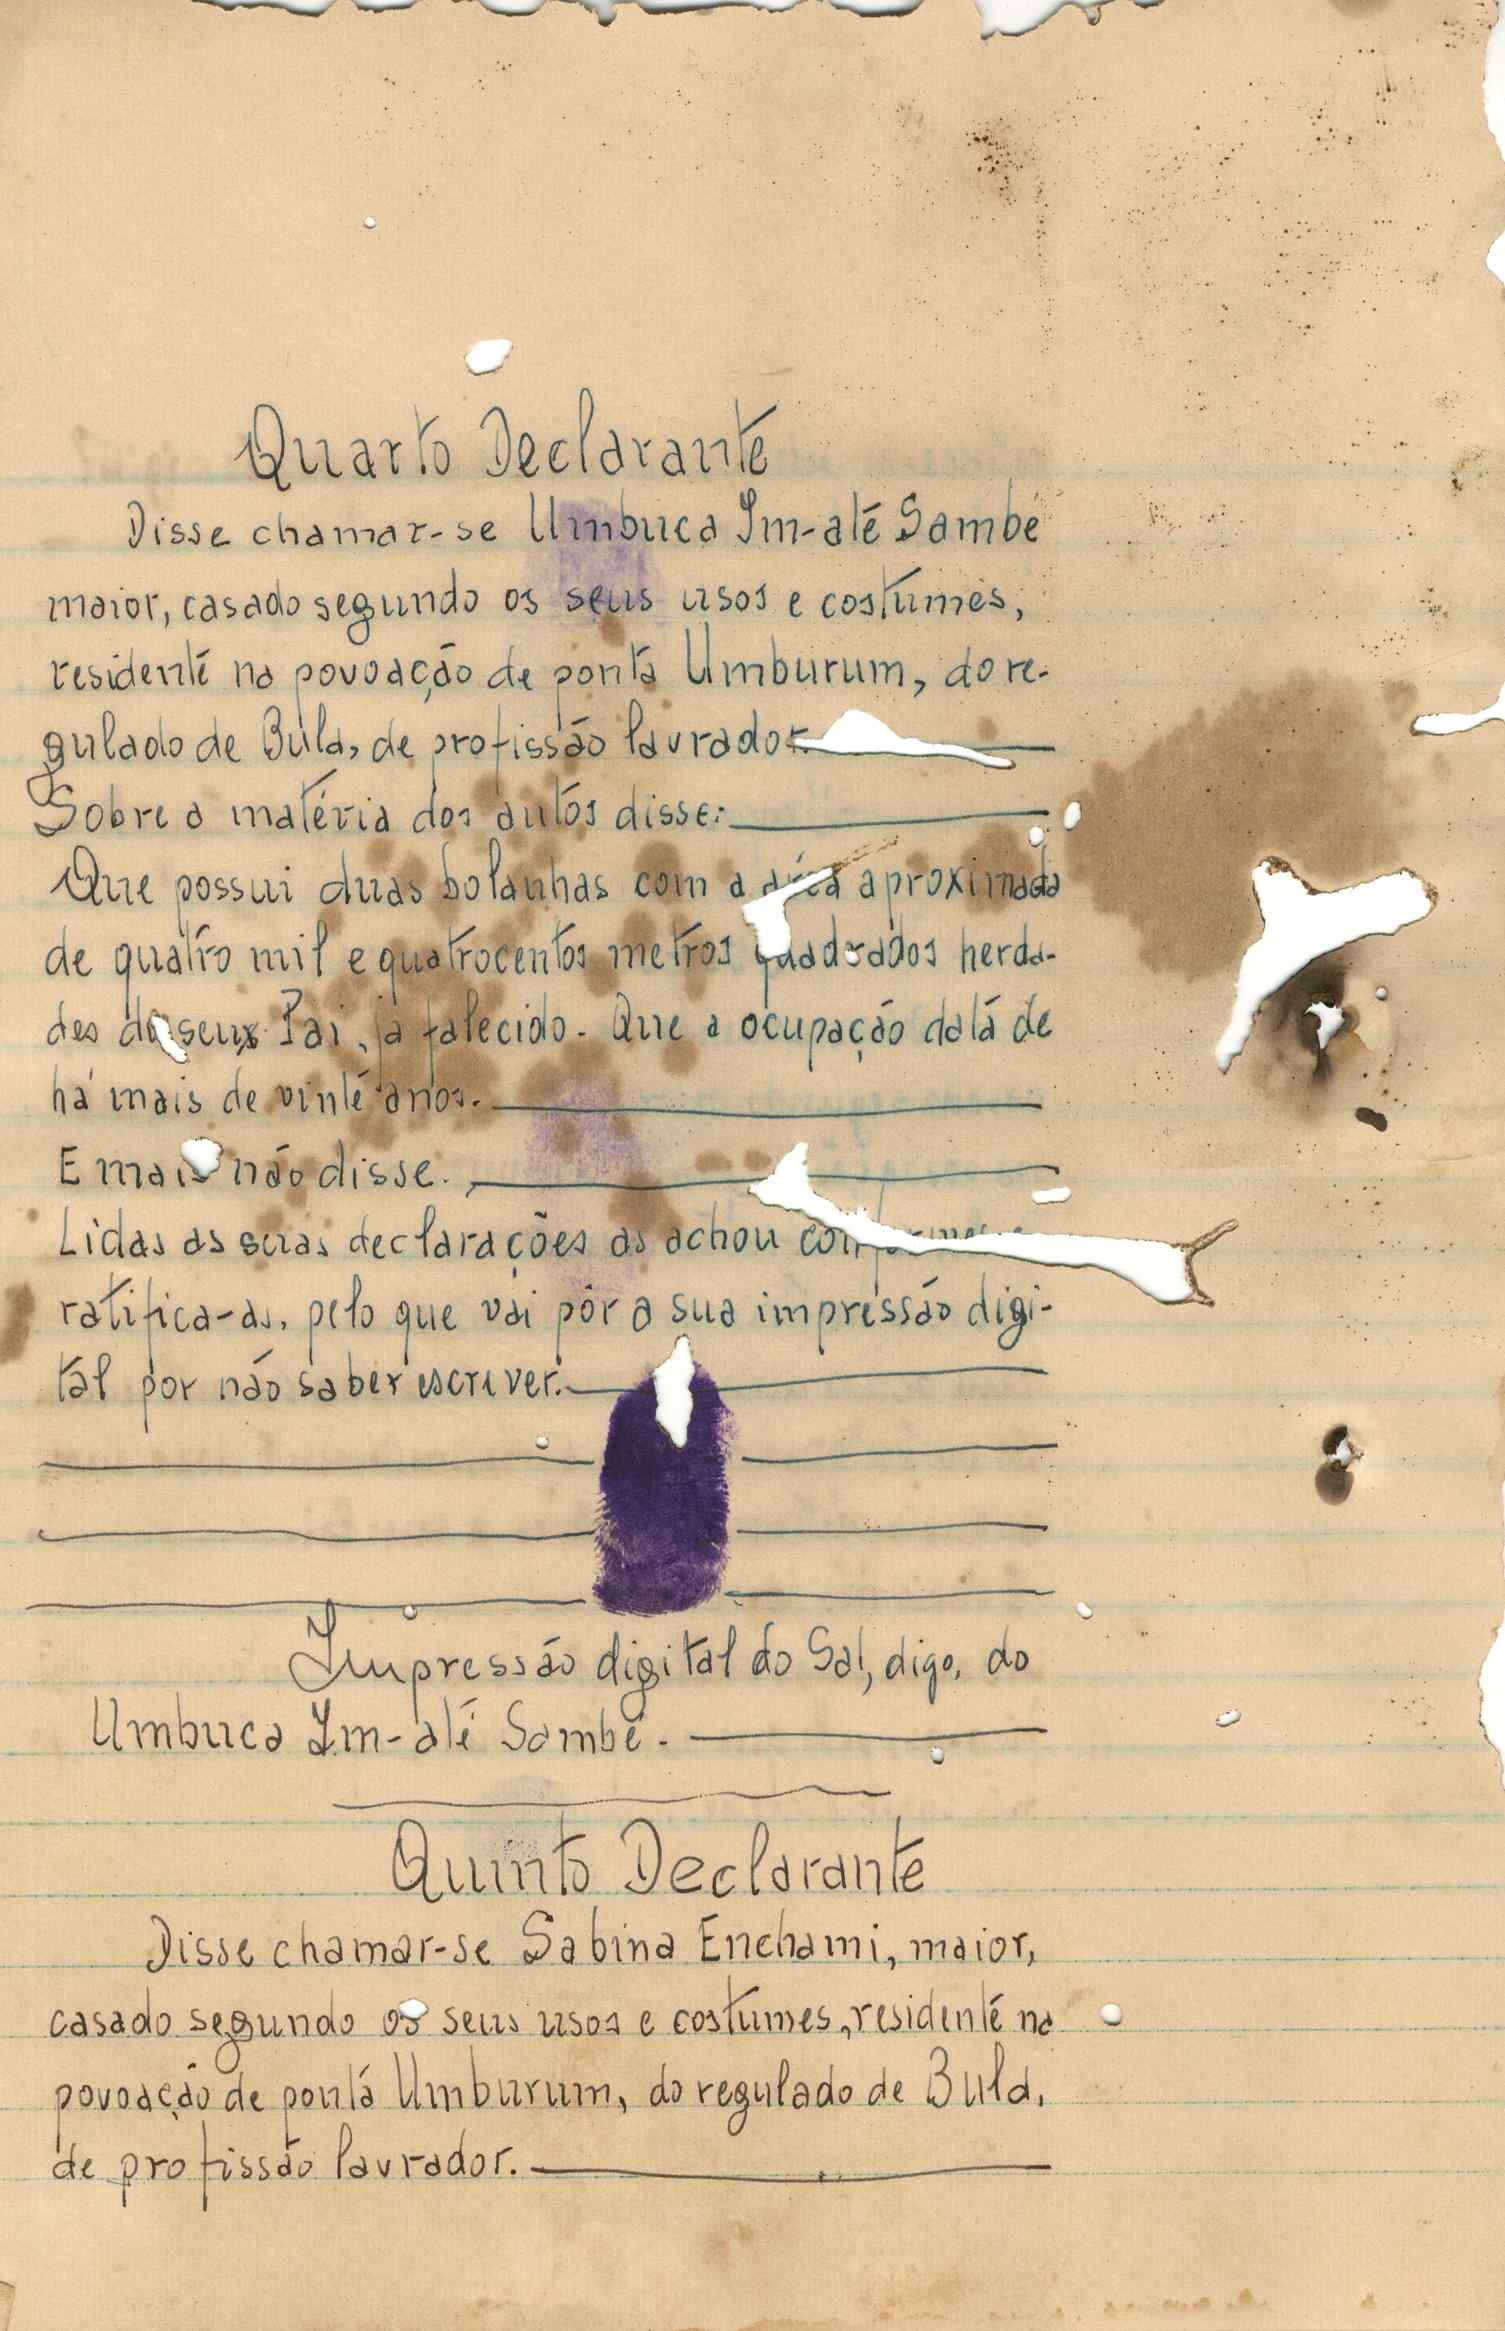 Quarto Declarante
Disse chamar-se Umbuca Im-até Sambé
maior, casado segundo os seus usos e costumes,
residente na povoação de ponta Umburum, do re-
gulado de Bula, de profissão lavrador.
Sobre a matéria dos autos disse:
Que possui duas bolanhas com a área aproximada
de quatro mil e quatrocentos metros quadrados herda-
des do seux Pai, já falecido. Que a ocupação data de
há mais de vinte anos.
E mais não disse.
Lidas as suas declarações as achou conformes e
ratifica-as, pelo que vai pôr a sua impressão digi-
tal por não saber escrever.
Impressão digital do Sal, digo, do
Umbuca Im-até Sambé.
Quinto Declarante
Disse chamar-se Sabina Enchami, maior,
casado segundo os seus usos e costumes, residente na
povoação de ponta Umburum, do regulado de Bula,
de profissão lavrador.